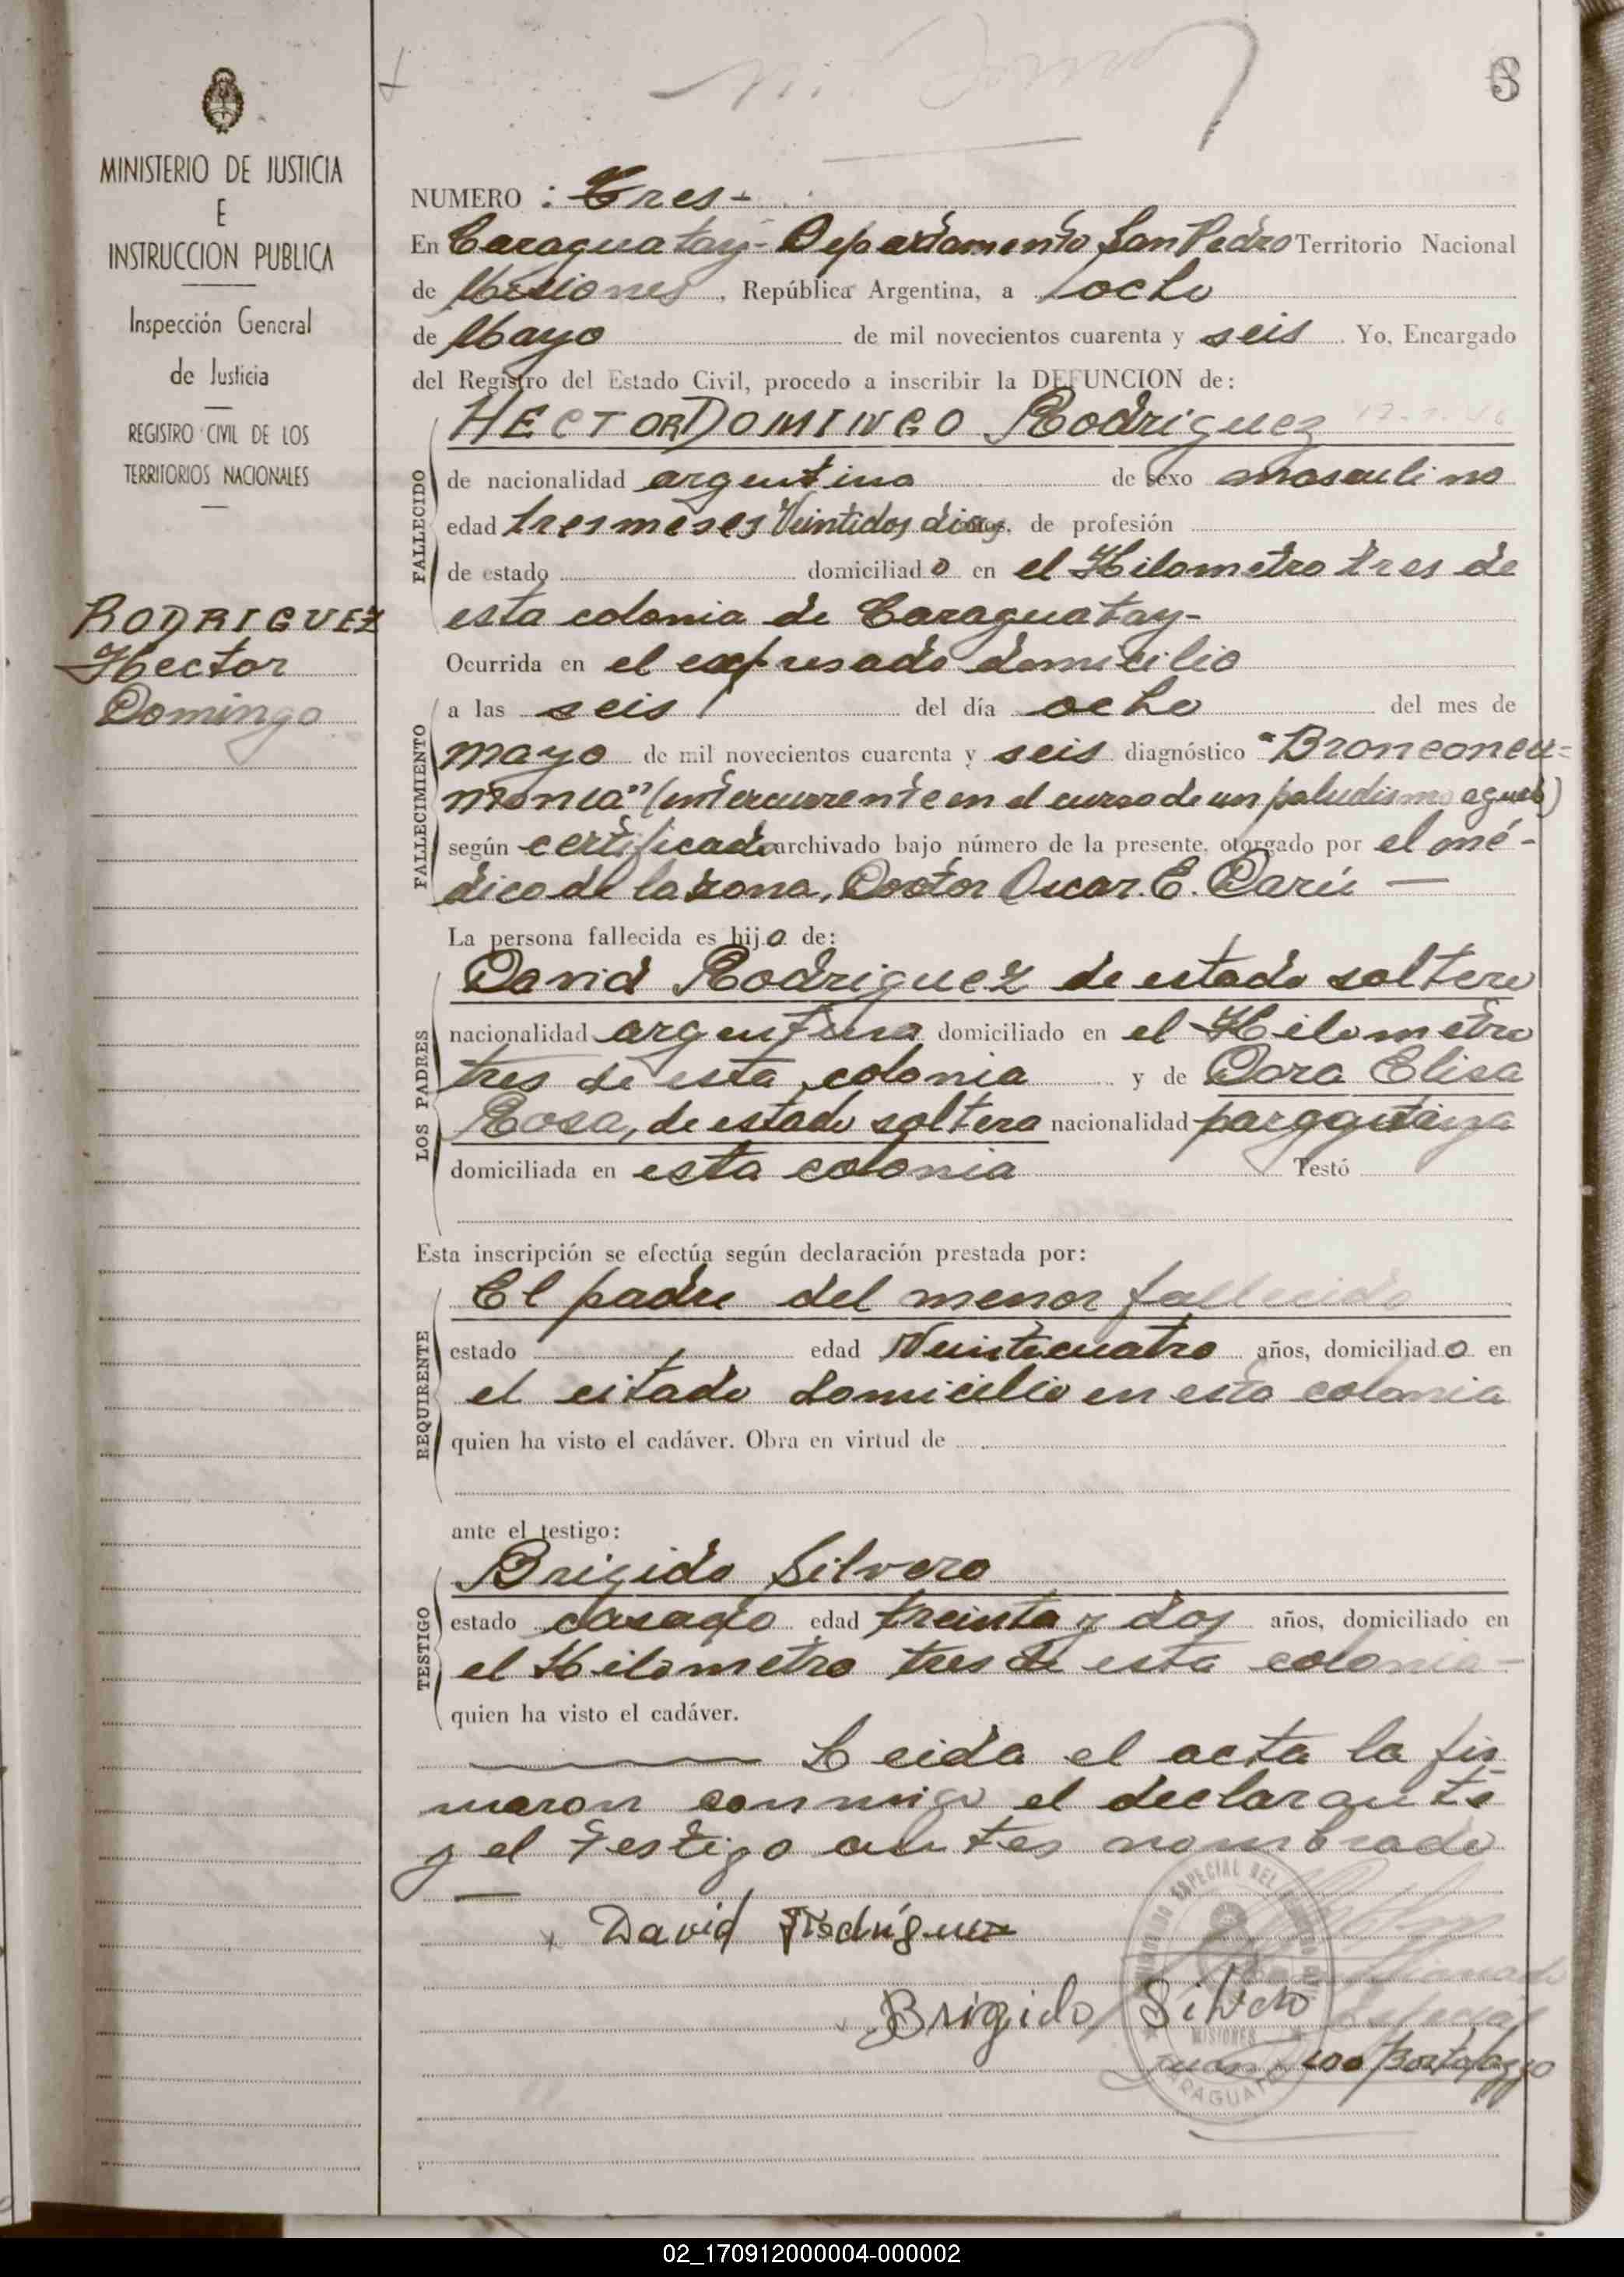 3
MINISTERIO DE JUSTICIA
E
INSTRUCCION PUBLICA
Inspección General
de Justicia
REGISTRO CIVIL DE LOS
TERRITORIOS NACIONALES
RODRIGUEZ
Hector
Domingo
NUMERO : Tres-
En Caraguatay- Departamento San Pedro Territorio Nacional
de Misiones, República Argentina, a ocho
de Mayo de mil novecientos cuarenta y seis. Yo, Encargado
del Registro del Estado Civil, procedo a inscribir la DEFUNCION de:
HECTOR DOMINGO Rodriguez
FALLECIDO
de nacionalidad argentina de sexo masculino
edad tres meses Veintidos dias, de profesión
de estado domiciliado en el Kilometro tres de
esta colonia de Caraguatay-
Ocurrida en el expresado domicilio
FALLECIMIENTO
a las seis del día ocho del mes de
mayo de mil novecientos cuarenta y seis diagnóstico "Bronconeu=
monia" (intercurrente en el curso de un paludismo agudo)
según certificado archivado bajo número de la presente, otorgado por el mé-
dico de la zona, Doctor Oscar. E. Darú —
La persona fallecida es hijo de:
LOS PADRES
David Rodriguez de estado soltero
nacionalidad argentina domiciliado en el Kilometro
tres de esta colonia y de Dora Elisa
Rosa, de estado soltera nacionalidad paraguaya
domiciliada en esta colonia Testó
Esta inscripción se efectúa según declaración prestada por:
REQUIRENTE
El padre del menor fallecido
estado edad Veinticuatro años, domiciliado en
el citado domicilio en esta colonia
quien ha visto el cadáver. Obra en virtud de
ante el testigo:
TESTIGO
Brigido Silvero
estado casado edad treinta y dos años, domiciliado en
el Kilometro tres de esta colonia-
quien ha visto el cadáver.
Leida el acta la fir
maron conmigo el declarante
y el testigo antes nombrado
David Rodriguez
ESPECIAL DEL
Brigido Silvero
MISIONES
02_170912000004-000002